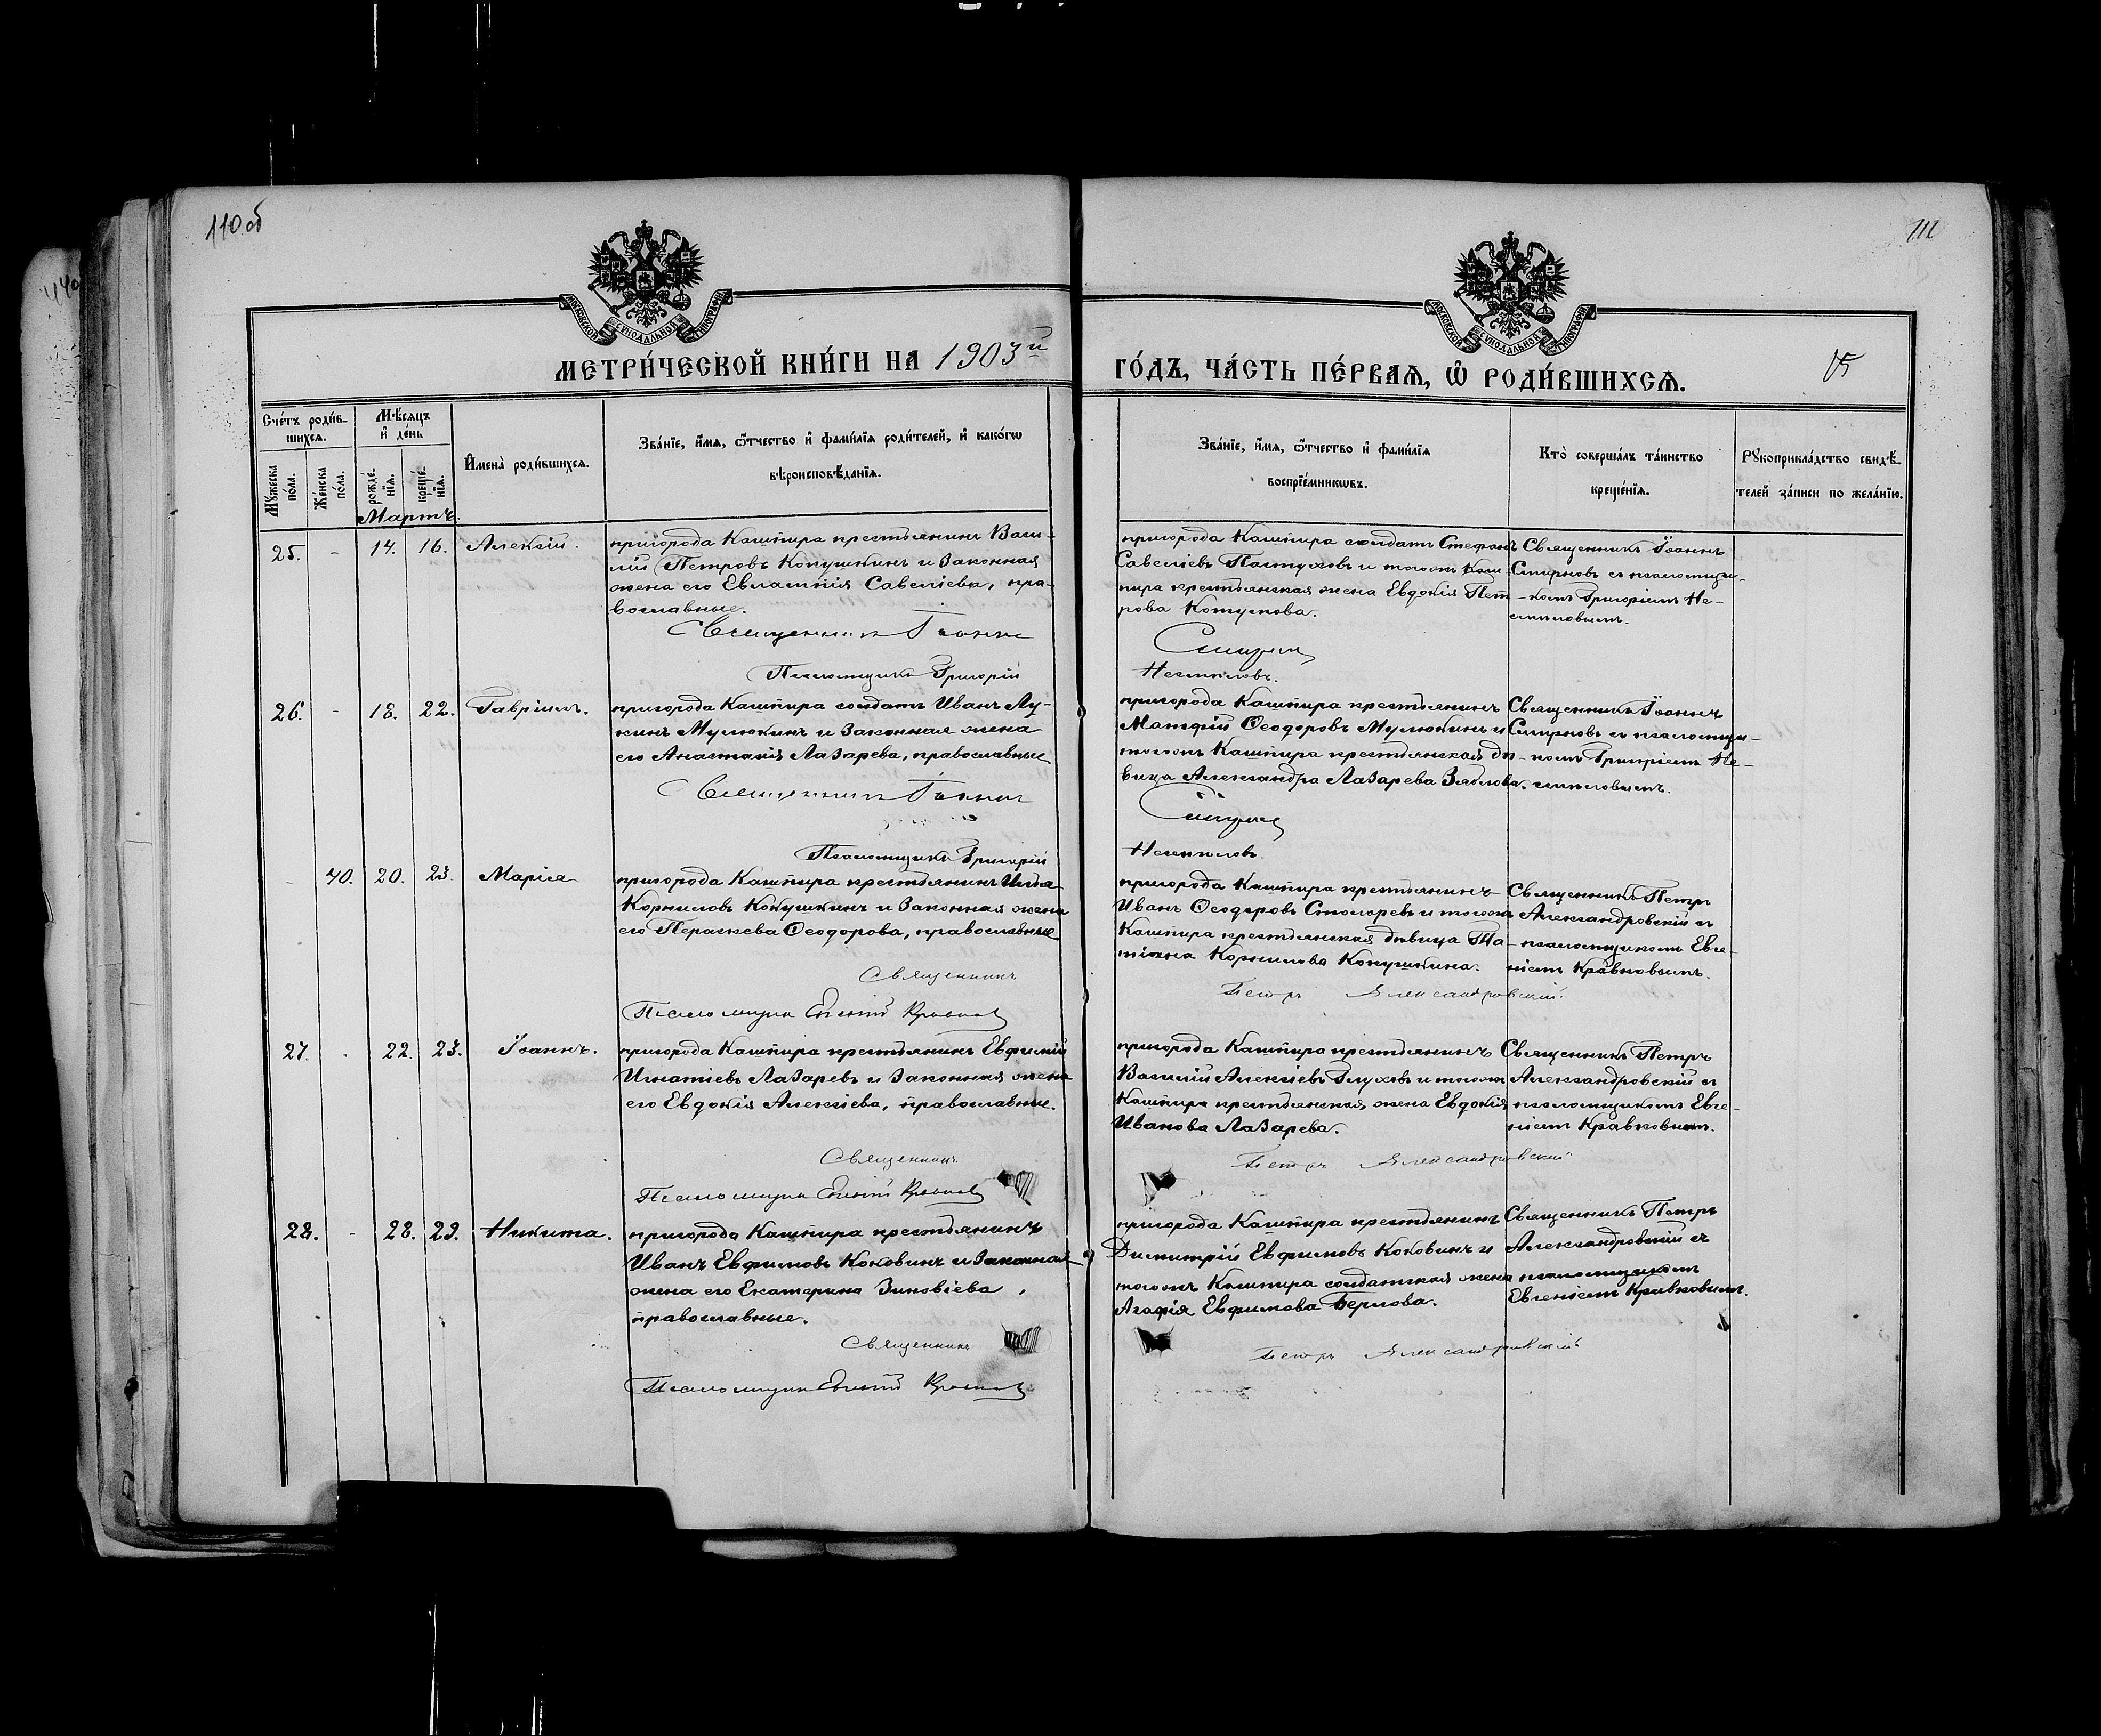 110 об
111
МОСКОВСКОЙ СУНОДАЛЬНОЙ ТИПОГРАФІИ
МОСКОВСКОЙ СУНОДАЛЬНОЙ ТИПОГРАФІИ
МЕТРИ́ЧЕСКОЙ КНИ́ГИ НА 1903й
ГО́ДЪ, ЧА́СТЬ ПЕ́РВАѦ, Ѡ҆ РОДИ́ВШИХСѦ.
Сче́тъ роди́в-
шихсѧ.
Мѣ́сѧцъ
и҆ де́нь
Мꙋжеска по́ла.
Же́нска по́ла.
рожде́-
нїѧ.
креще́-
нїѧ.
И҆мена̀ роди́вшихсѧ.
Зва́нїе, и҆́мѧ, ѻ҆́тчество и҆ фами́лїѧ роди́телей, и҆ како́гѡ
вѣроисповѣ́данїѧ.
Зва́нїе, и҆́мѧ, ѻ҆́тчество и҆ фами́лїѧ
воспрїе́мникѡвъ.
Кто̀ соверша́лъ та́инство
креще́нїѧ.
Рꙋкоприкла́дство свидѣ́-
телей за́писи по жела́нїю.
Мартъ.
25. - 14. 16. Алексій.
пригорода Кашпира крестьянинъ Васи-
лій Петровъ Кокушкинъ и законная
жена его Евлампія Савеліева, пра-
вославные.
Священникъ Іоаннъ
Псаломщикъ Григорій
пригорода Кашпира солдатъ Стефанъ
Савеліевъ Пастуховъ и тогожъ Каш-
пира крестьянская жена Евдокія Пет-
рова
Смирнов
Несмѣловъ.
Священникъ Іоаннъ
Смирновъ съ псаломщи-
-комъ Григоріемъ Не-
смѣловымъ.
26. - 18. 22. Гавріилъ.
пригорода Кашпира солдатъ Иванъ Лу-
кинъ Мулюкинъ и законная жена
его Анастасія Лазарева, православные
Священникъ Іоаннъ
Псаломщикъ Григорій
пригорода Кашпира крестьянинъ
Матѳій Ѳеодоровъ Мулюкинъ и
тогожъ Кашпира крестьянская дѣ-
вица Александра Лазарева Зяблова.
Смирнов
Несмѣловъ
Священникъ Іоаннъ
Смирновъ съ псаломщи-
-комъ Григоріемъ Не-
смѣловымъ.
- 40. 20. 23. Марія
пригорода Кашпира крестьянинъ Илья
Корниловъ Кокушкинъ и законная жена
его Параскева Ѳеодорова, православные
Священникъ
Псаломщикъ Евгеній Кравков
пригорода Кашпира крестьянинъ
Иванъ Ѳеодоровъ Столяревъ и тогожъ
Кашпира крестьянская дѣвица Та-
тіана Корнилова Кокушкина.
Петръ Александровскій.
Священникъ Петръ
Александровскій съ
псаломщикомъ Евге-
ніемъ Кравковымъ.
27. - 22. 23. Іоаннъ.
пригорода Кашпира крестьянинъ Евфимій
Игнатіевъ Лазаревъ и законная жена
его Евдокія Алексіева, православные.
Священникъ
Псаломщикъ Евгеній Кравков
пригорода Кашпира крестьянинъ
Василій Алексіевъ Глуховъ и тогожъ
Кашпира крестьянская жена Евдокія
Иванова Лазарева.
Петръ Александровскій
Священникъ Петръ
Александровскій съ
псаломщикомъ Евге-
ніемъ Кравковымъ.
28. - 28. 29. Никита.
пригорода Кашпира крестьянинъ
Иванъ Евфимовъ Коковинъ и законная
жена его Екатерина Зиновіева,
православные.
Священникъ
Псаломщикъ Евгеній Кравков
пригорода Кашпира крестьянинъ
Димитрій Евфимовъ Коковинъ и
тогожъ Кашпира солдатская жена
Агафія Евфимова Берлова.
Петръ Александровскій
Священникъ Петръ
Александровскій съ
псаломщикомъ
Евгеніемъ Кравковымъ.